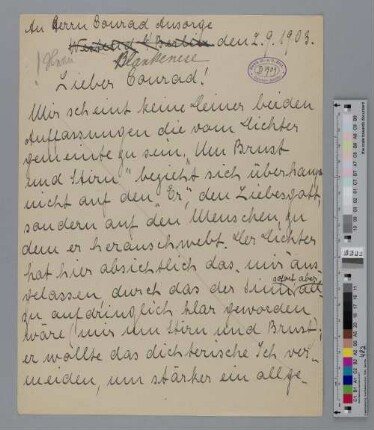 An Herrn Conrad Ansorge
Westend b. Berlin den 2.9.1903.
Blankenese
Lieber Conrad!
Mir scheint keine Deiner beiden
Auffassungen die vom Dichter
gemeinte zu sein. „Um Brust
und Stirn" bezieht sich überhaupt
nicht auf den „Er", den Liebesgott,
sondern auf den Menschen, zu
dem er heranschwebt. Der Dichter
hat hier absichtlich das „mir" aus-
gelassen, durch das der Sinn
sofort aber
zu aufdringlich klar geworden
wäre (mir um Stirn und Brust);
er wollte das dichterische Ich ver-
meiden, um stärker ein allge-